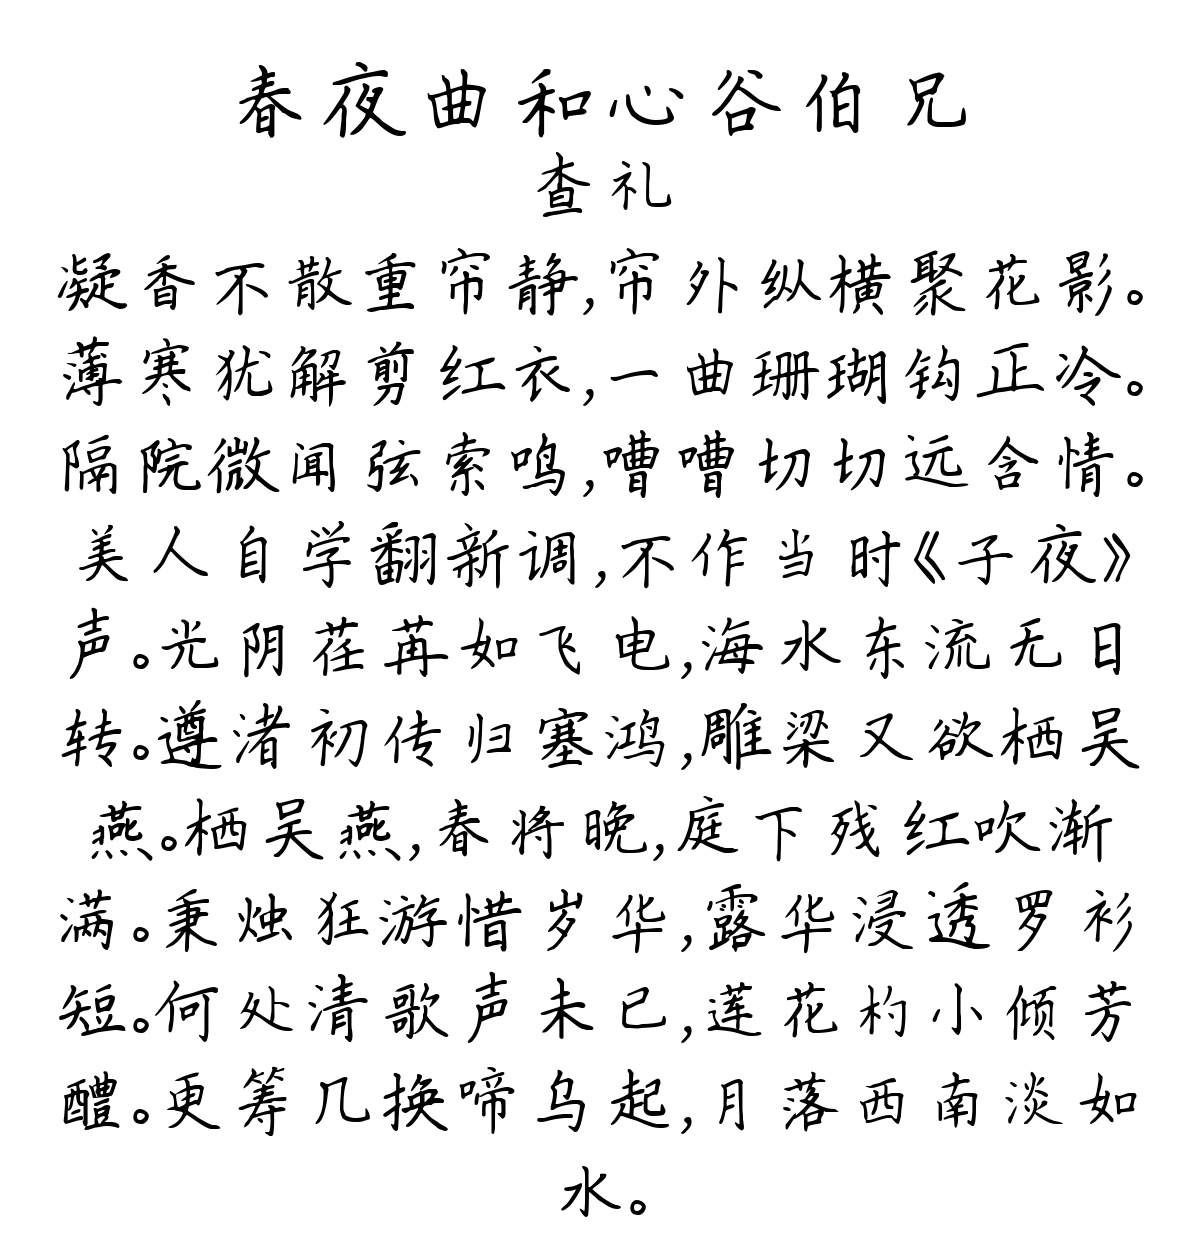 春夜曲和心谷伯兄
查礼
凝香不散重帘静,帘外纵横聚花影。
薄寒犹解剪红衣,一曲珊瑚钩正冷。
隔院微闻弦索鸣,嘈嘈切切远含情。
美人自学翻新调,不作当时《子夜》
声。光阴荏苒如飞电,海水东流无日
转。遵渚初传归塞鸿,雕梁又欲栖吴
燕。栖吴燕,春将晚,庭下残红吹渐
满。秉烛狂游惜岁华,露华浸透罗衫
短。何处清歌声未已,莲花杓小倾芳
醴。更筹几换啼乌起,月落西南淡如
水。